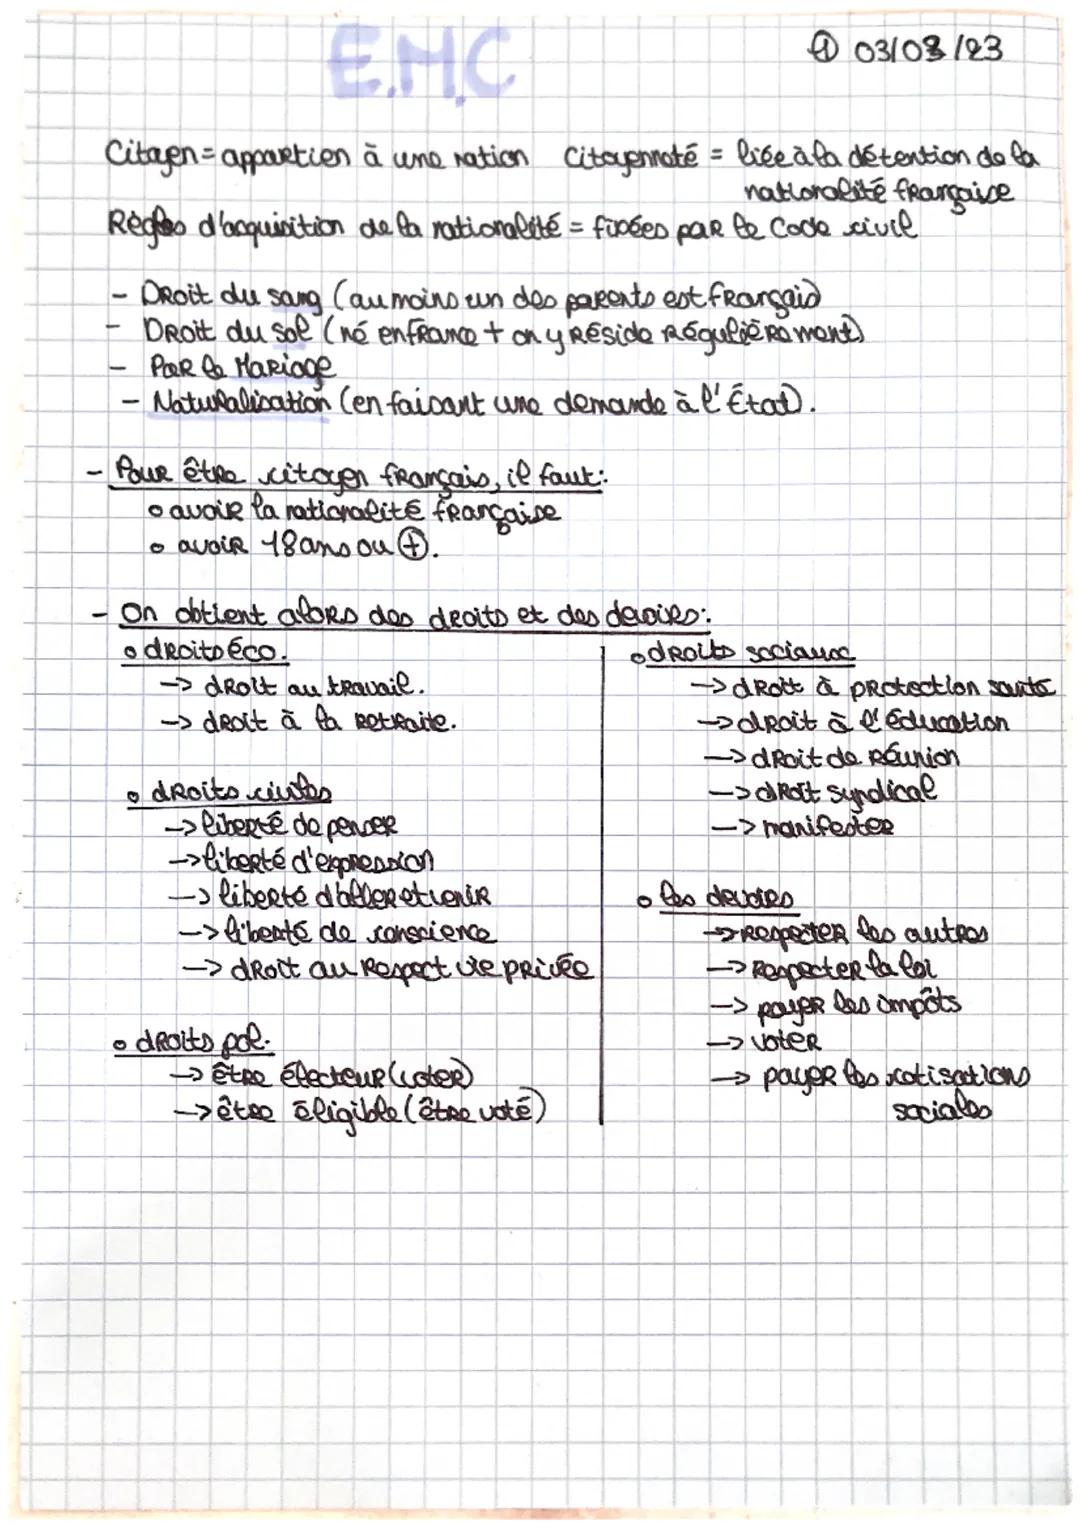 E.M.C
① 03/08/23
Citoyen = appartien à une nation Citoyenneté = liée à la détention de la
nationalité française
Règles d'acquisition de la nationalité = fixées par le Code civil
- Droit du sang (au moins un des parents est français)
- Droit du sol (né en france + on y réside régulièrement)
- Par le Mariage
- Naturalisation (en faisant une demande à l'État).
- Pour être citoyen français, il faut:
o avoir la nationalité française
o avoir 18 ans ou ⊕.
- On obtient alors des droits et des devoirs:
o droits éco.
-> droit au travail.
-> droit à la retraite.
o droits civiles
-> liberté de penser
-> liberté d'expression
-> liberté d'aller et venir
-> liberté de conscience
-> droit au respect vie privée
o droits pol.
-> être électeur (voter)
-> être éligible (être voté)
o droits sociaux
-> droit à protection santé
-> droit à l'éducation
-> droit de réunion
-> droit syndical
-> manifester
o les devoirs
-> respecter les autres
-> respecter la loi
-> payer les impôts
-> voter
-> payer les cotisations
sociales